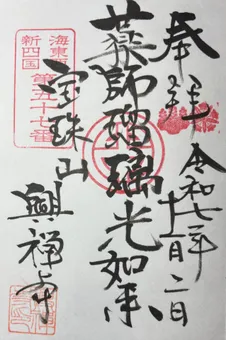 奉拝
令和七年十一月二日
薬師瑠璃光如来
海東
新四国
第五十七番
宝珠山
興禅寺